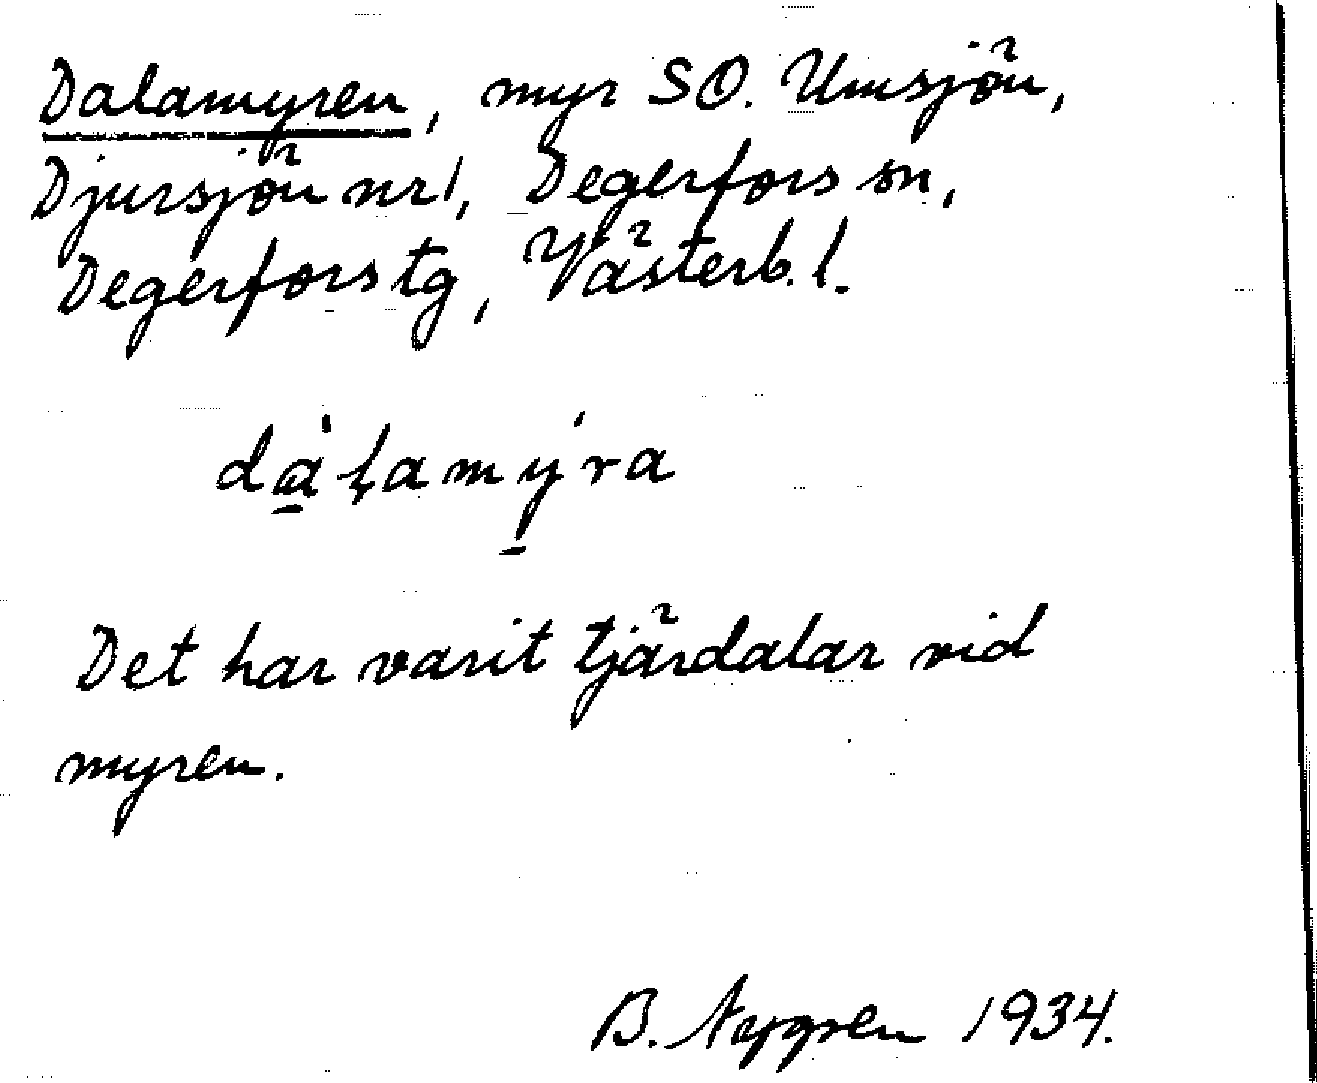 Dalamyren, myr SO. Umsjön,
Djursjön nr 1, Degerfors sn,
Degerfors tg, Västerb. l.
da̱̍ɫamý̱ra
Det har varit tjärdalar vid
myren.
B. Nygren 1934.